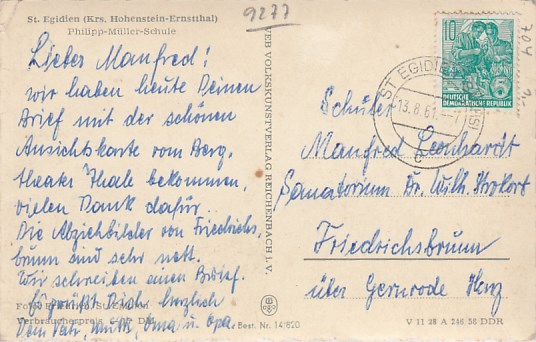 St. Egidien (Krs. Hohenstein-Ernstthal)
Philipp-Müller-Schule
9277
704
Lieber Manfred!
wir haben heute Deinen
Brief mit der schönen
Ansichtskarte vom Berg-
theater Thale bekommen,
vielen Dank dafür.
Die Abziehbilder von Friedrichs-
brunn sind sehr nett.
Wir schreiben einen Brief.
Es grüßt Dich herzlich
Dein Vati, Mutti, Oma u. Opa.
Verbraucherpreis
Best. Nr. 14/820
VEB VOLKSKUNSTVERLAG REICHENBACH I. V.
10
DEUTSCHE
DEMOKRATISCHE REPUBLIK
ST EGIDIEN
13.8.61.-7
c
Schüler
Manfred Leonhardt
Sanatorium Dr. Wilh.
Friedrichsbrunn
über Gernrode Harz
V 11 28 A 246 58 DDR